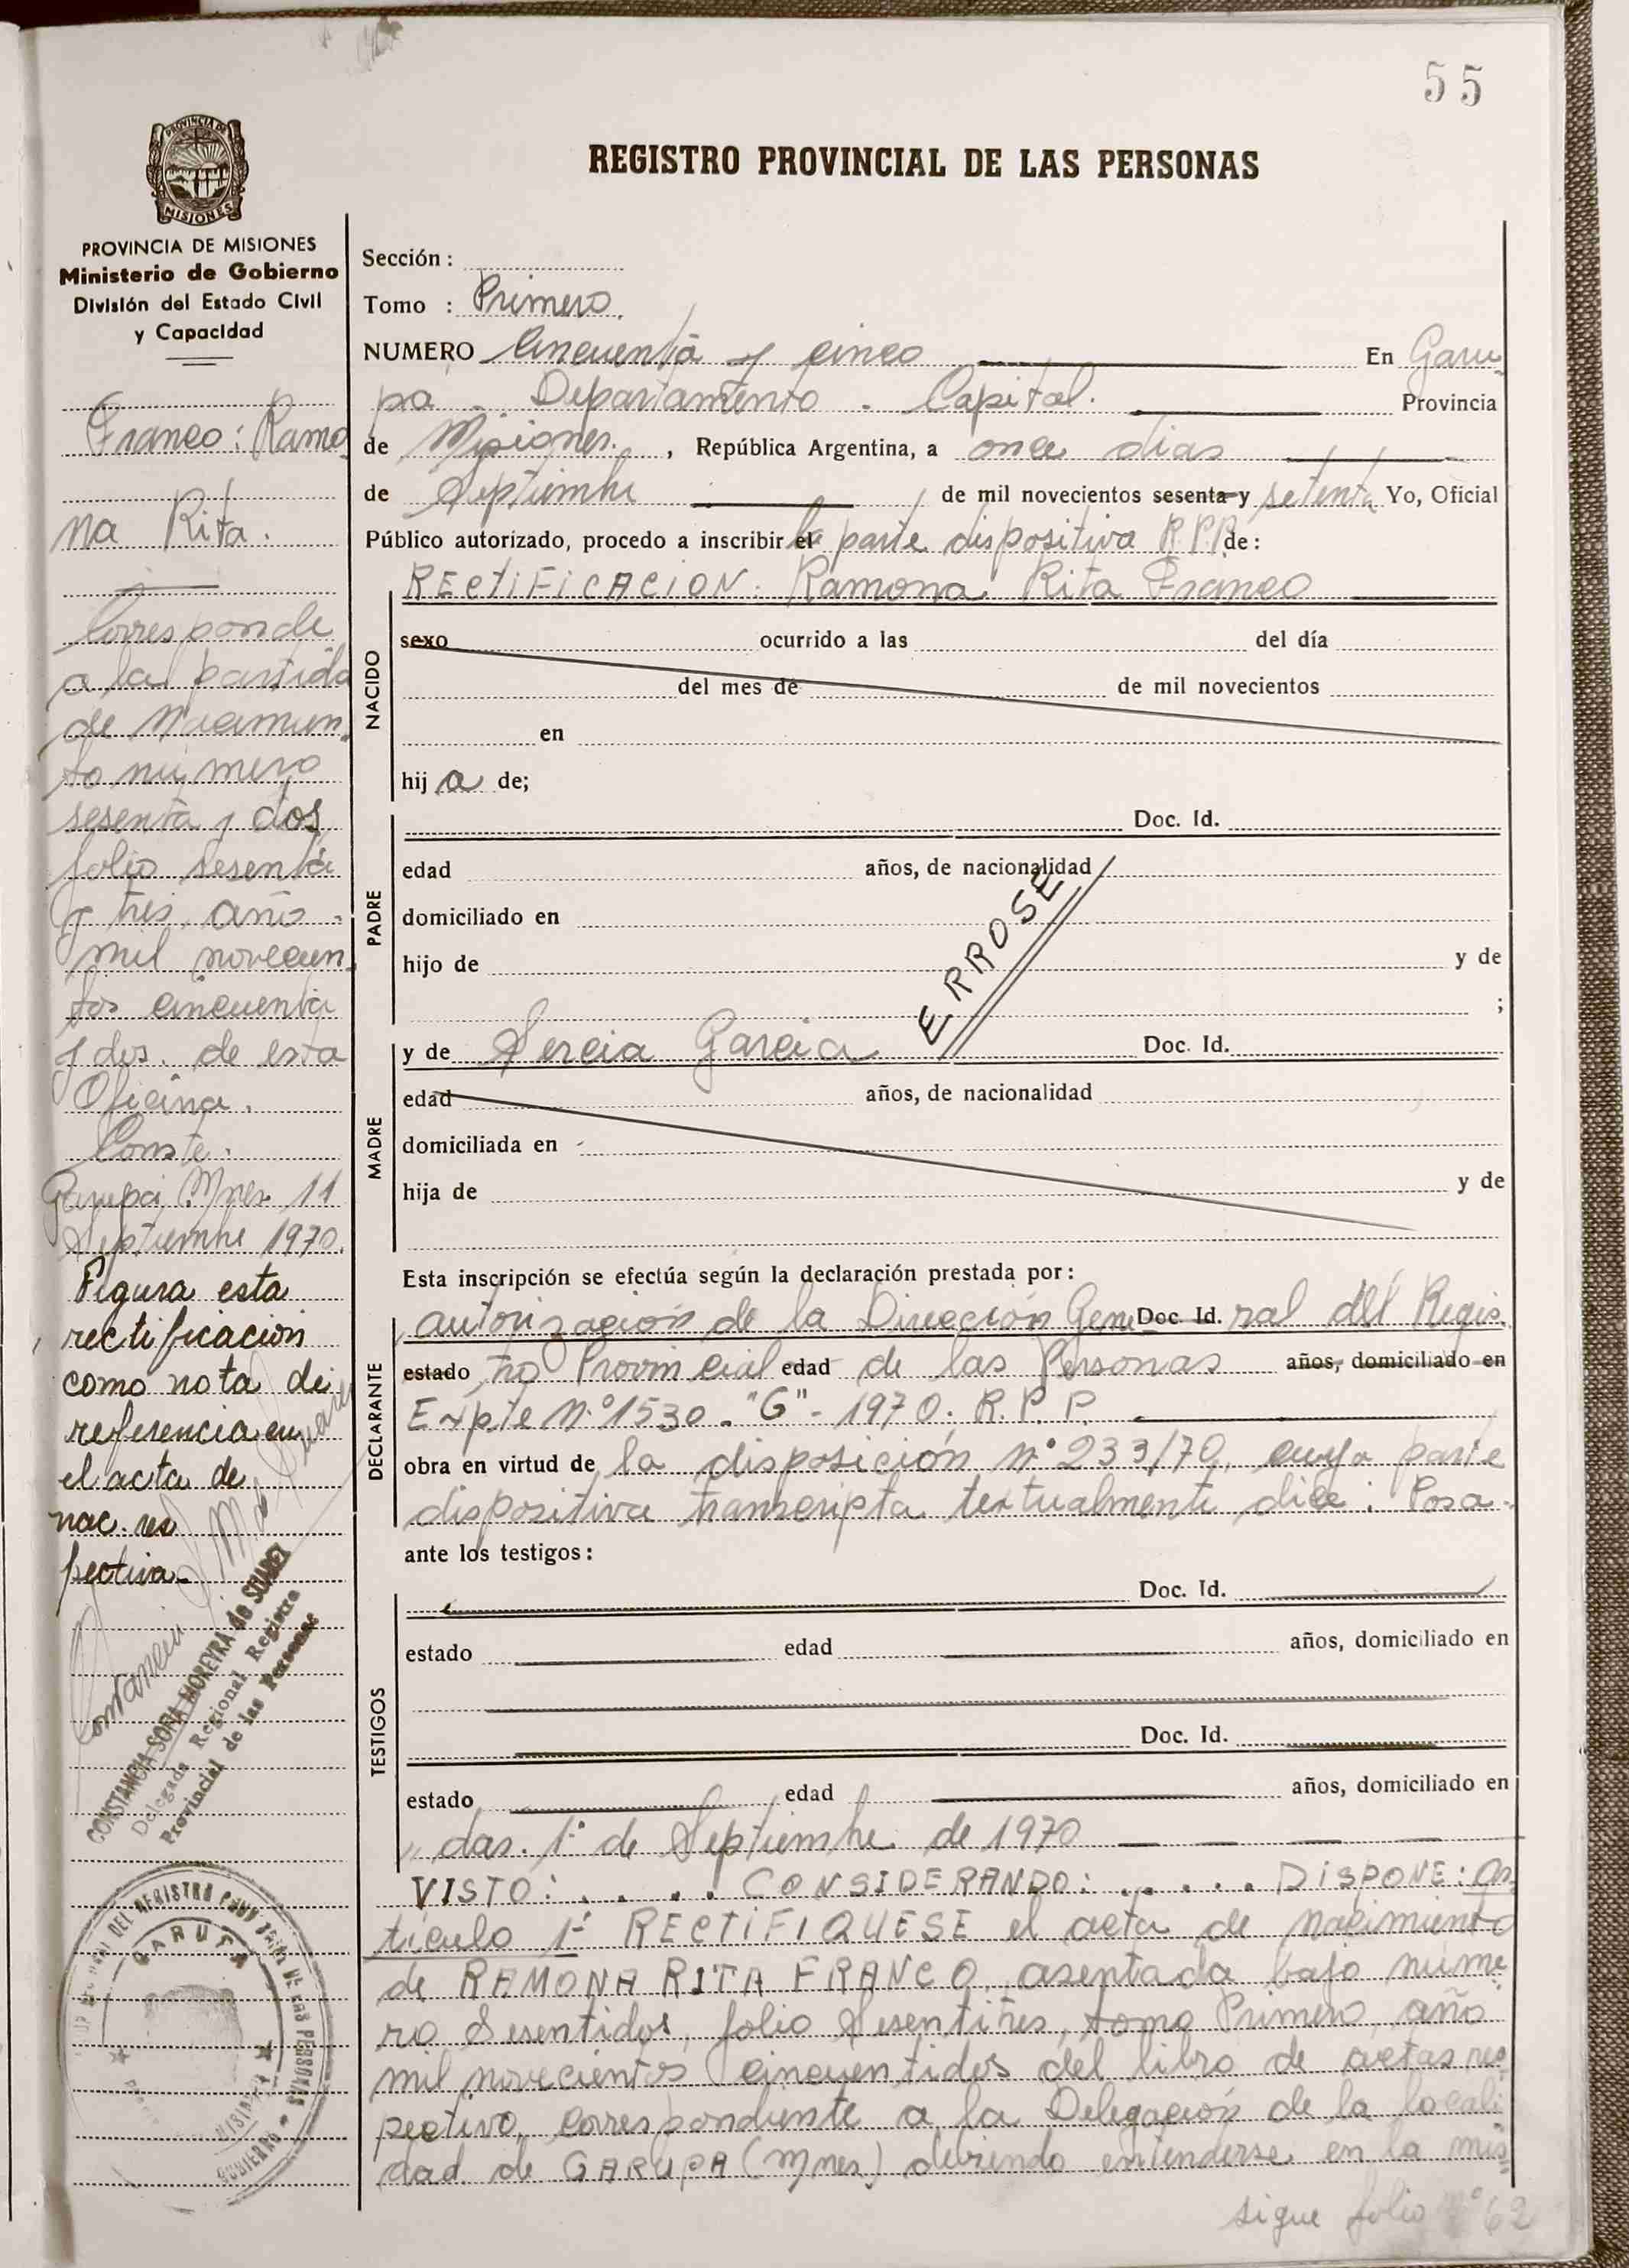 55
PROVINCIA DE
MISIONES
PROVINCIA DE MISIONES
Ministerio de Gobierno
División del Estado Civil
y Capacidad
Franco: Ramo
na Rita.
Corresponde
a la partida
de Nacimien
to número
sesenta y dos
folio sesenta
y tres, año
mil novecien
tos cincuenta
y dos. de esta
Oficina.
Conste.
Garupá, Mnes. 11
Septiembre 1970.
Figura esta
rectificación
como nota de
referencia en
el acta de
nac. res
pectiva.
CONSTANCIA SOFIA MOREYRA de SUAREZ
Delegada Regional Registro
Provincial de las Personas
GARUPA
REGISTRO PROVINCIAL DE LAS PERSONAS
Sección:
Tomo : Primero.
NUMERO Cincuenta y cinco En Garu
pá - Departamento - Capital. Provincia
de Misiones. , República Argentina, a once dias
de Septiembre de mil novecientos sesenta y setenta Yo, Oficial
Público autorizado, procedo a inscribir el la parte dispositiva R.P.P. de:
RECTIFICACION: Ramona Rita Franco
NACIDO
sexo ocurrido a las del día
del mes de de mil novecientos
en
hij a de;
PADRE
Doc. Id.
edad años, de nacionalidad
domiciliado en
hijo de y de
;
ERROSE
MADRE
y de Sercia Garcia Doc. Id.
edad años, de nacionalidad
domiciliada en
hija de y de
Esta inscripción se efectúa según la declaración prestada por:
DECLARANTE
autorización de la Dirección Gene Doc. Id. ral del Regis
estado tro Provincial edad de las Personas años, domiciliado en
Expte N.º 1530 - "G" - 1970. R. P. P.
obra en virtud de la disposición nº 233/70, cuya parte
dispositiva transcripta textualmente dice: Posa
ante los testigos:
TESTIGOS
Doc. Id.
estado edad años, domiciliado en
Doc. Id.
estado edad años, domiciliado en
das. 1º de Septiembre de 1970
VISTO: . . . . CONSIDERANDO: . . . . . DISPONE: Ar
tículo 1º RECTIFIQUESE el acta de nacimiento
de RAMONA RITA FRANCO, asentada bajo núme
ro Sesentidos, folio Sesentitres, tomo Primero, año
mil novecientos cincuentidos del libro de actas res
pectivo, correspondiente a la Delegación de la locali
dad de GARUPA (Mnes) debiendo entenderse en la mis
sigue folio nº 62